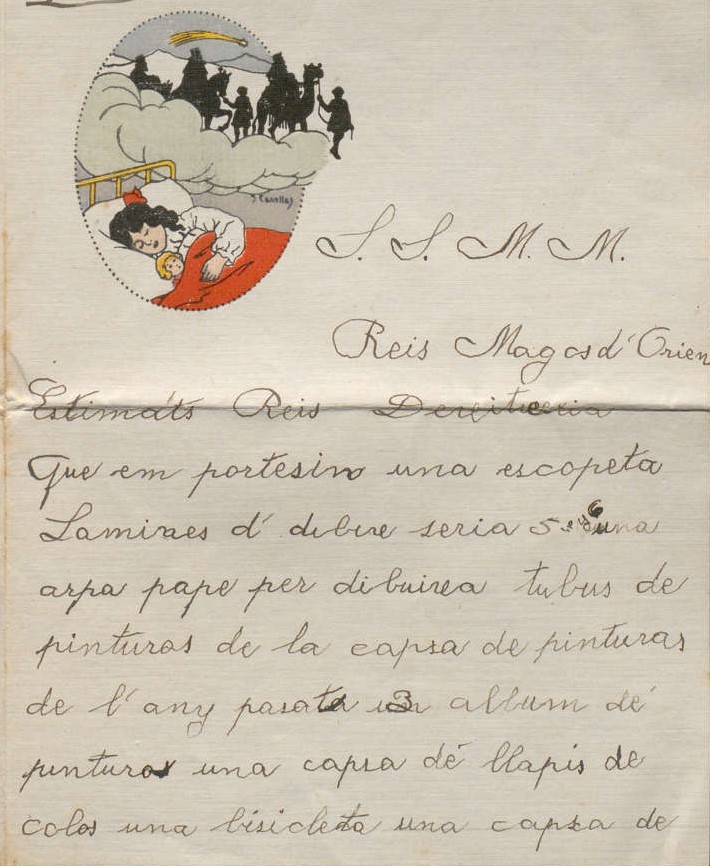 J. Canellas
S. S. M. M.
Reis Magos d'Orien
Estimáts Reis
Que em portesin una escopeta
Lamines d' dibux seria 5 una
arpa pape per dibuirea tubus de
pinturas de la capsa de pinturas
de l'any pasata 3 album dé
pinturas una capsa dé llapis de
colos una bisicleta una capsa de